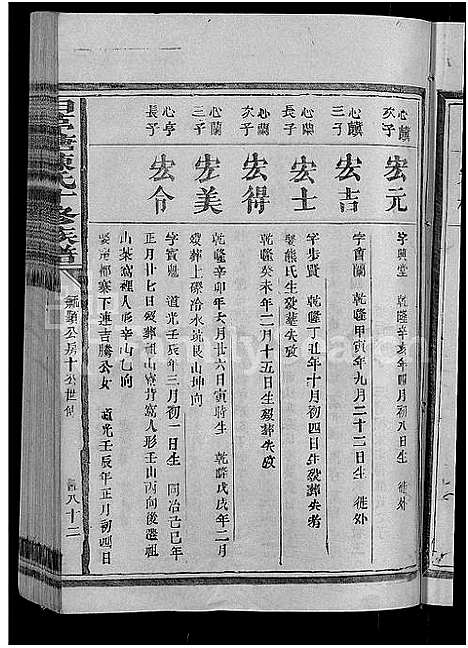 心䕫
次子
宏元
字興堂 乾隆辛亥年四月初八日生 徙外
心䕫
三子
宏吉
字會蘭 乾隆甲寅年九月二十三日生 徙外
心蘭
長子
宏士
字步賢 乾隆丁丑年十月初四日生歿葬失考
娶熊氏生歿葬失攷
心蘭
次子
宏得
乾隆癸未年二月十五日生歿葬失攷
心蘭
三子
宏美
乾隆辛卯年六月廿六日寅時生 乾隆戊戌年二月
歿葬上磜冷水坑艮山坤向
心亭
長子
宏令
字賓 道光壬辰年三月初一日生 同治己巳年
正月廿七日歿葬祖山寮背窩人形壬山丙向後遷祖
山茶窩裡人形辛山乙向
娶 都寨下連吉騰公女 道光壬辰年正月初四日
陳氏十修族譜
公房十公世傳
八十三